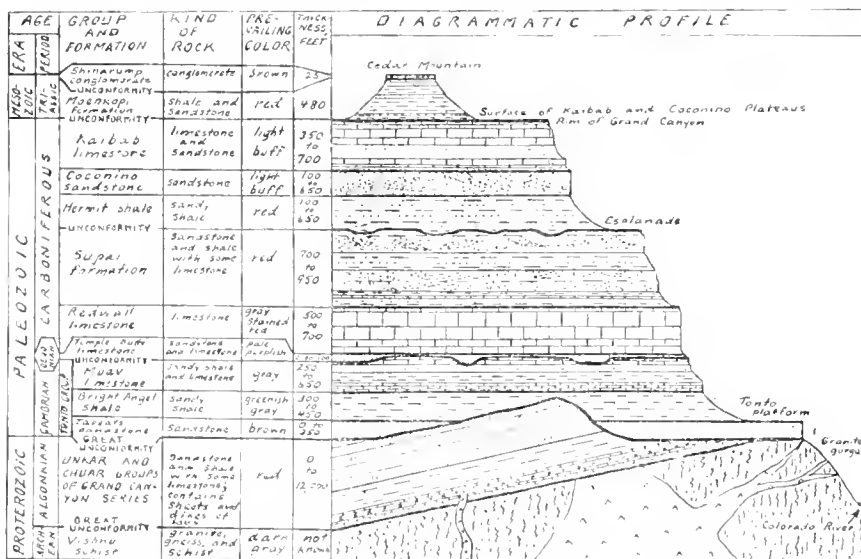 AGE
ERA
PERIOD
GROUP
AND
FORMATION
KIND
OF
ROCK
PRE-
VAILING
COLOR
THICK
NESS,
FEET
DIAGRAMMATIC PROFILE
MESO-
ZOIC
TRI-
ASSIC
Shinarump
conglomerate
conglomerate
brown
25
UNCONFORMITY
Moenkopi
formation
shale and
sandstone
red
480
UNCONFORMITY
PALEOZOIC
CARBONIFEROUS
Kaibab
limestone
limestone
and
sandstone
light
buff
350
to
700
Coconino
sandstone
sandstone
light
buff
100
to
650
Hermit shale
sandy
shale
red
100
to
650
UNCONFORMITY
Supai
formation
Sandstone
and shale
with some
limestone
red
700
to
950
Redwall
limestone
limestone
gray
stained
red
500
to
700
Temple Butte
limestone
sandstone
and limestone
pale
purplish
UNCONFORMITY
CAMBRIAN
TONTO GROUP
Muav
limestone
Sandy shale
and limestone
gray
250
to
Bright Angel
shale
sandy
shale
greenish
gray
300
to
450
Tapeats
sandstone
sandstone
brown
0 to
GREAT
UNCONFORMITY
PROTEROZOIC
ALGONKIAN
UNKAR AND
CHUAR GROUPS
OF GRAND CAN-
YON SERIES
Sandstone
and shale
with some
limestone;
contains
sheets and
dikes of
lava
red
0
to
12,000
GREAT
UNCONFORMITY
ARCH-
EAN
Vishnu
Schist
granite,
gneiss, and
schist
dark
gray
not
known
Cedar Mountain
Surface of Kaibab and Coconino Plateaus
Rim of Grand Canyon
Esplanade
Tonto
platform
Granite
gorge
Colorado River